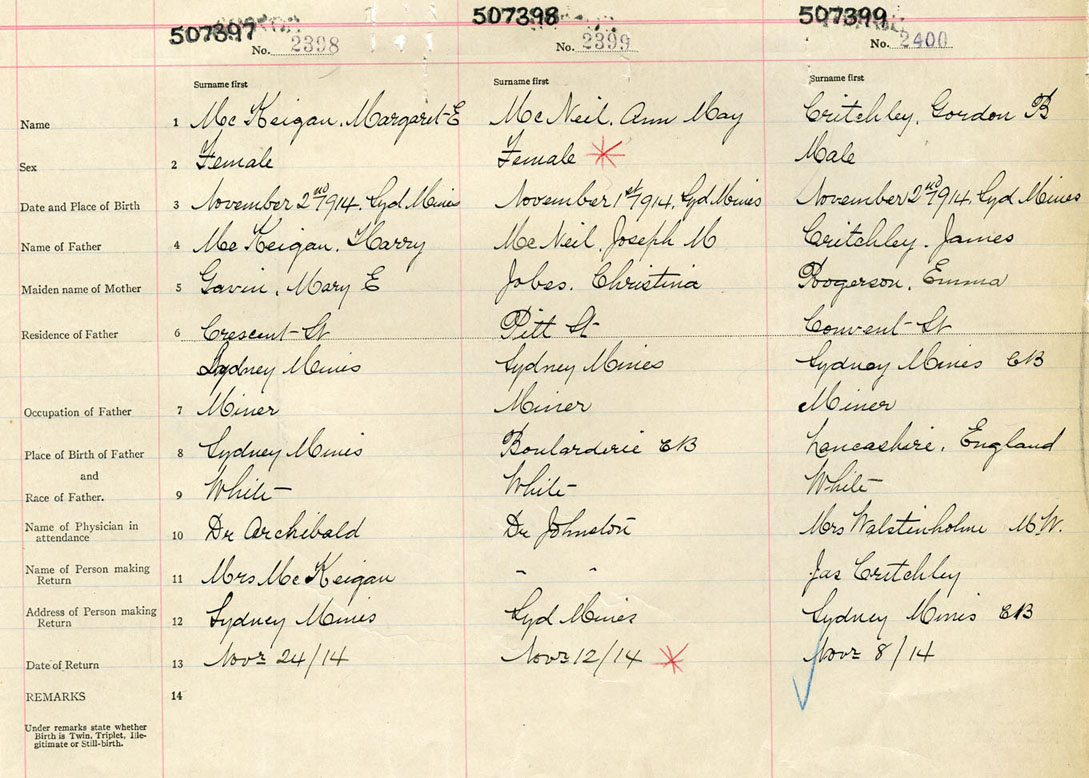 507397 507398 507399
No. 2398 No. 2399 No. 2400
Surname first Surname first Surname first
Name 1 Mc Keigan, Margaret E McNeil, Ann May Critchley, Gordon B
Sex 2 Female Female Male
Date and Place of Birth 3 November 2nd 1914. Syd Mines November 1st 1914, Syd Mines November 2nd 1914. Syd Mines
Name of Father 4 Mc Keigan, Harry McNeil, Joseph M Critchley, James
Maiden name of Mother 5 Gavin, Mary E Jobes, Christina Rogerson, Emma
Residence of Father 6 Crescent St Pitt St Convent St
Sydney Mines Sydney Mines Sydney Mines CB
Occupation of Father 7 Miner Miner Miner
Place of Birth of Father 8 Sydney Mines Boularderie CB Lancashire, England
and
Race of Father. 9 White White White
Name of Physician in
attendance 10 Dr Archibald Dr Johnston Mrs Walstenholme M W.
Name of Person making
Return 11 Mrs Mc Keigan " " Jas Critchley
Address of Person making
Return 12 Sydney Mines Syd Mines Sydney Mines CB
Date of Return 13 Novr 24/14 Novr 12/14 Novr 8/14
REMARKS 14
Under remarks state whether
Birth is Twin, Triplet, Ille-
gitimate or Still-birth.